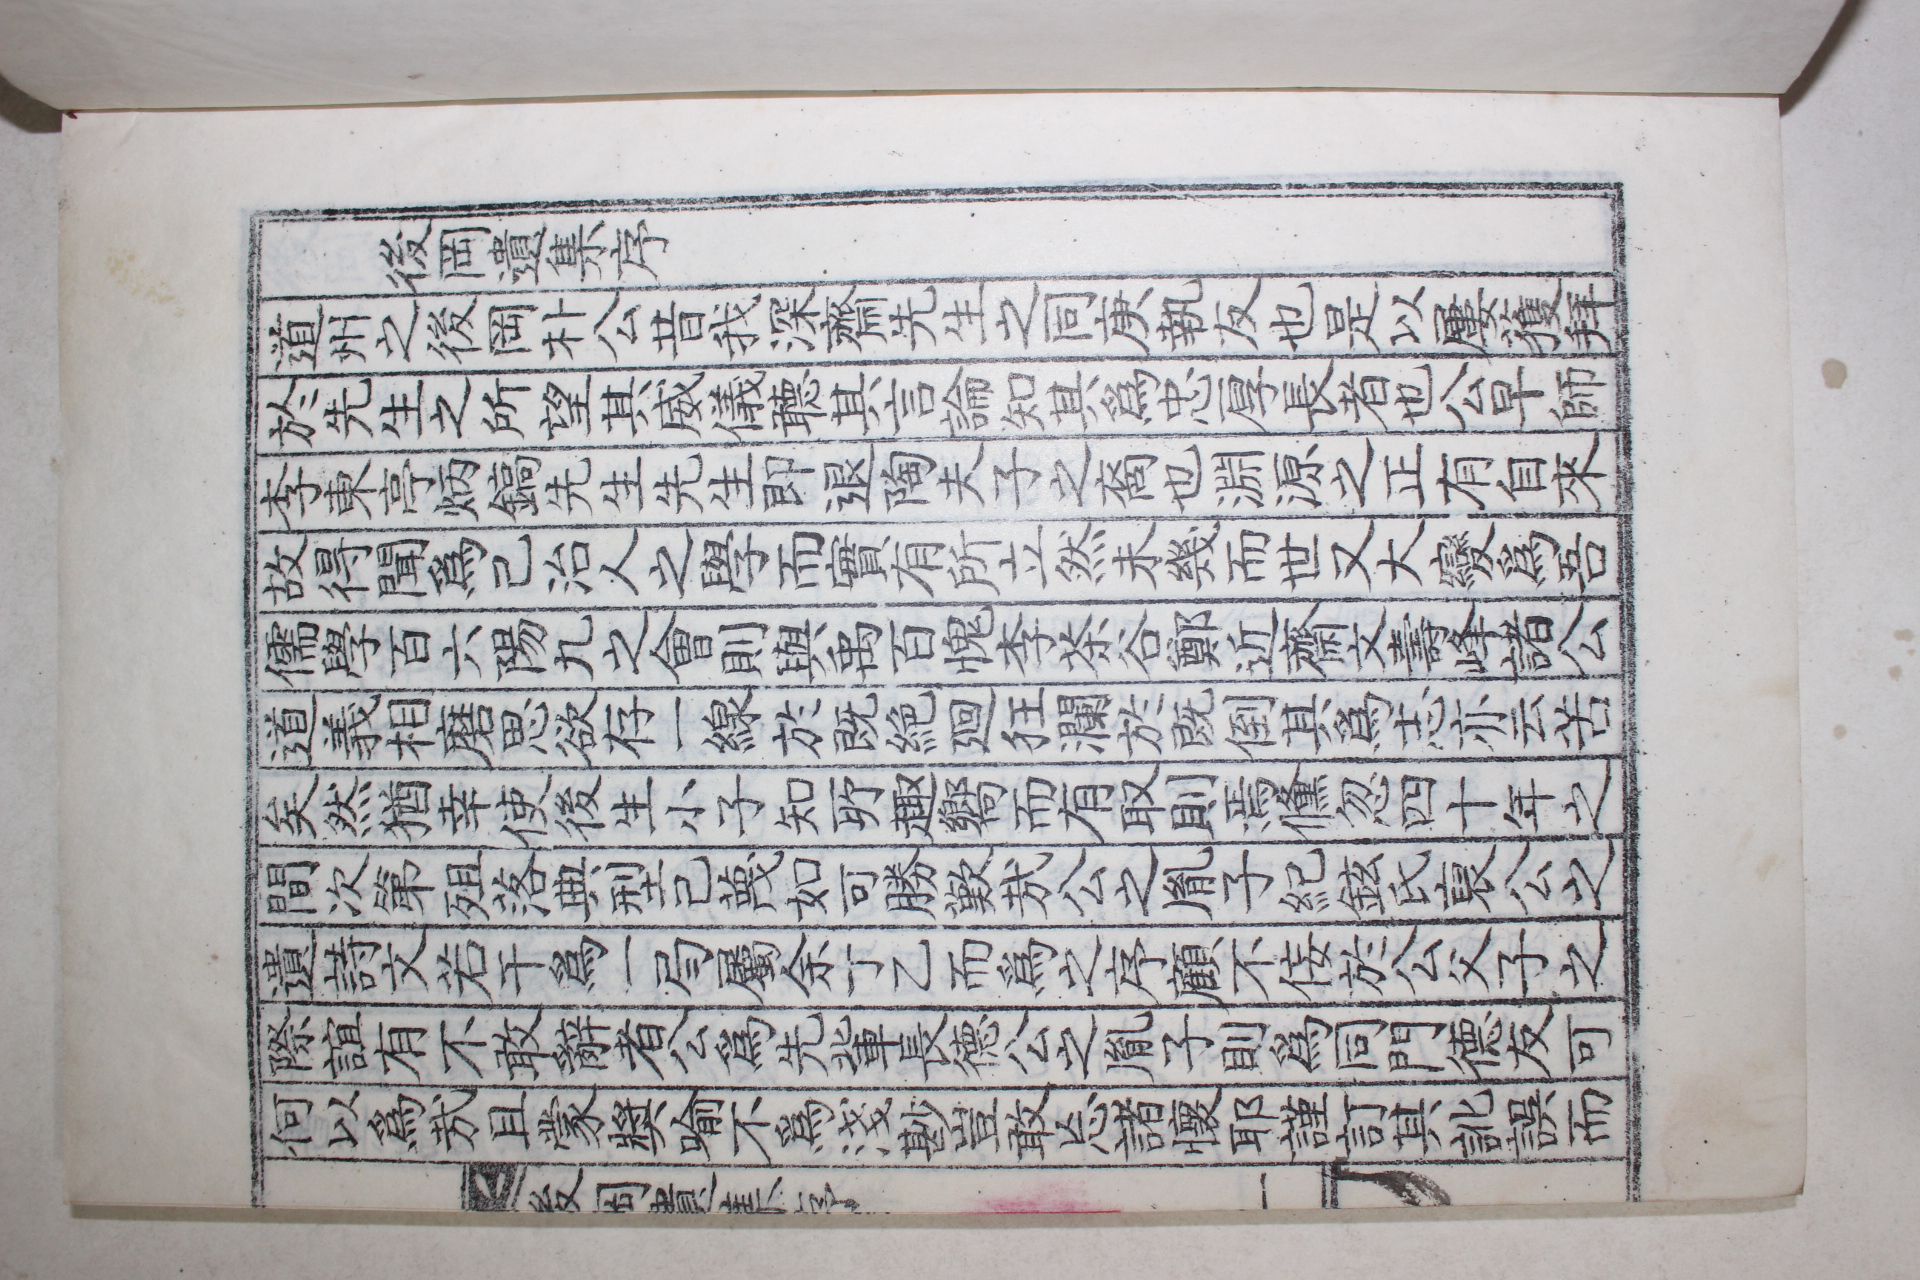 後岡遺集序
道州之後岡朴公昔我深齋先生之同庚執友也是以屢獲拜
於先生之所望其威儀聽其言論知其爲忠厚長者也公早師
李東亭炳鎬先生先生卽退陶夫子之裔也淵源之正有自來
故得聞爲己治人之學而實有所立然未幾而世又大變爲吾
儒學百六陽九之會則與禹百愧李某谷鄭近齋文壽峰諸公
道義相磨思欲存一線於既絶廻狂瀾於既倒其爲志亦云苦
矣然猶幸使後生小子知所趣嚮而有取則焉儵忽四十年之
間次第殂落典型已蔑如可勝歎哉公之胤子紀鉉氏裒公之
遺詩文若干爲一弓屬余丁乙而爲之序顧不佞於公父子之
際誼有不敢辭者公爲先輩長德公之胤子則爲同門德友可
何以爲哉且蒙獎喩不爲淺尠豈敢忘諸懷耶謹訂其訛誤而
後岡遺集序 一